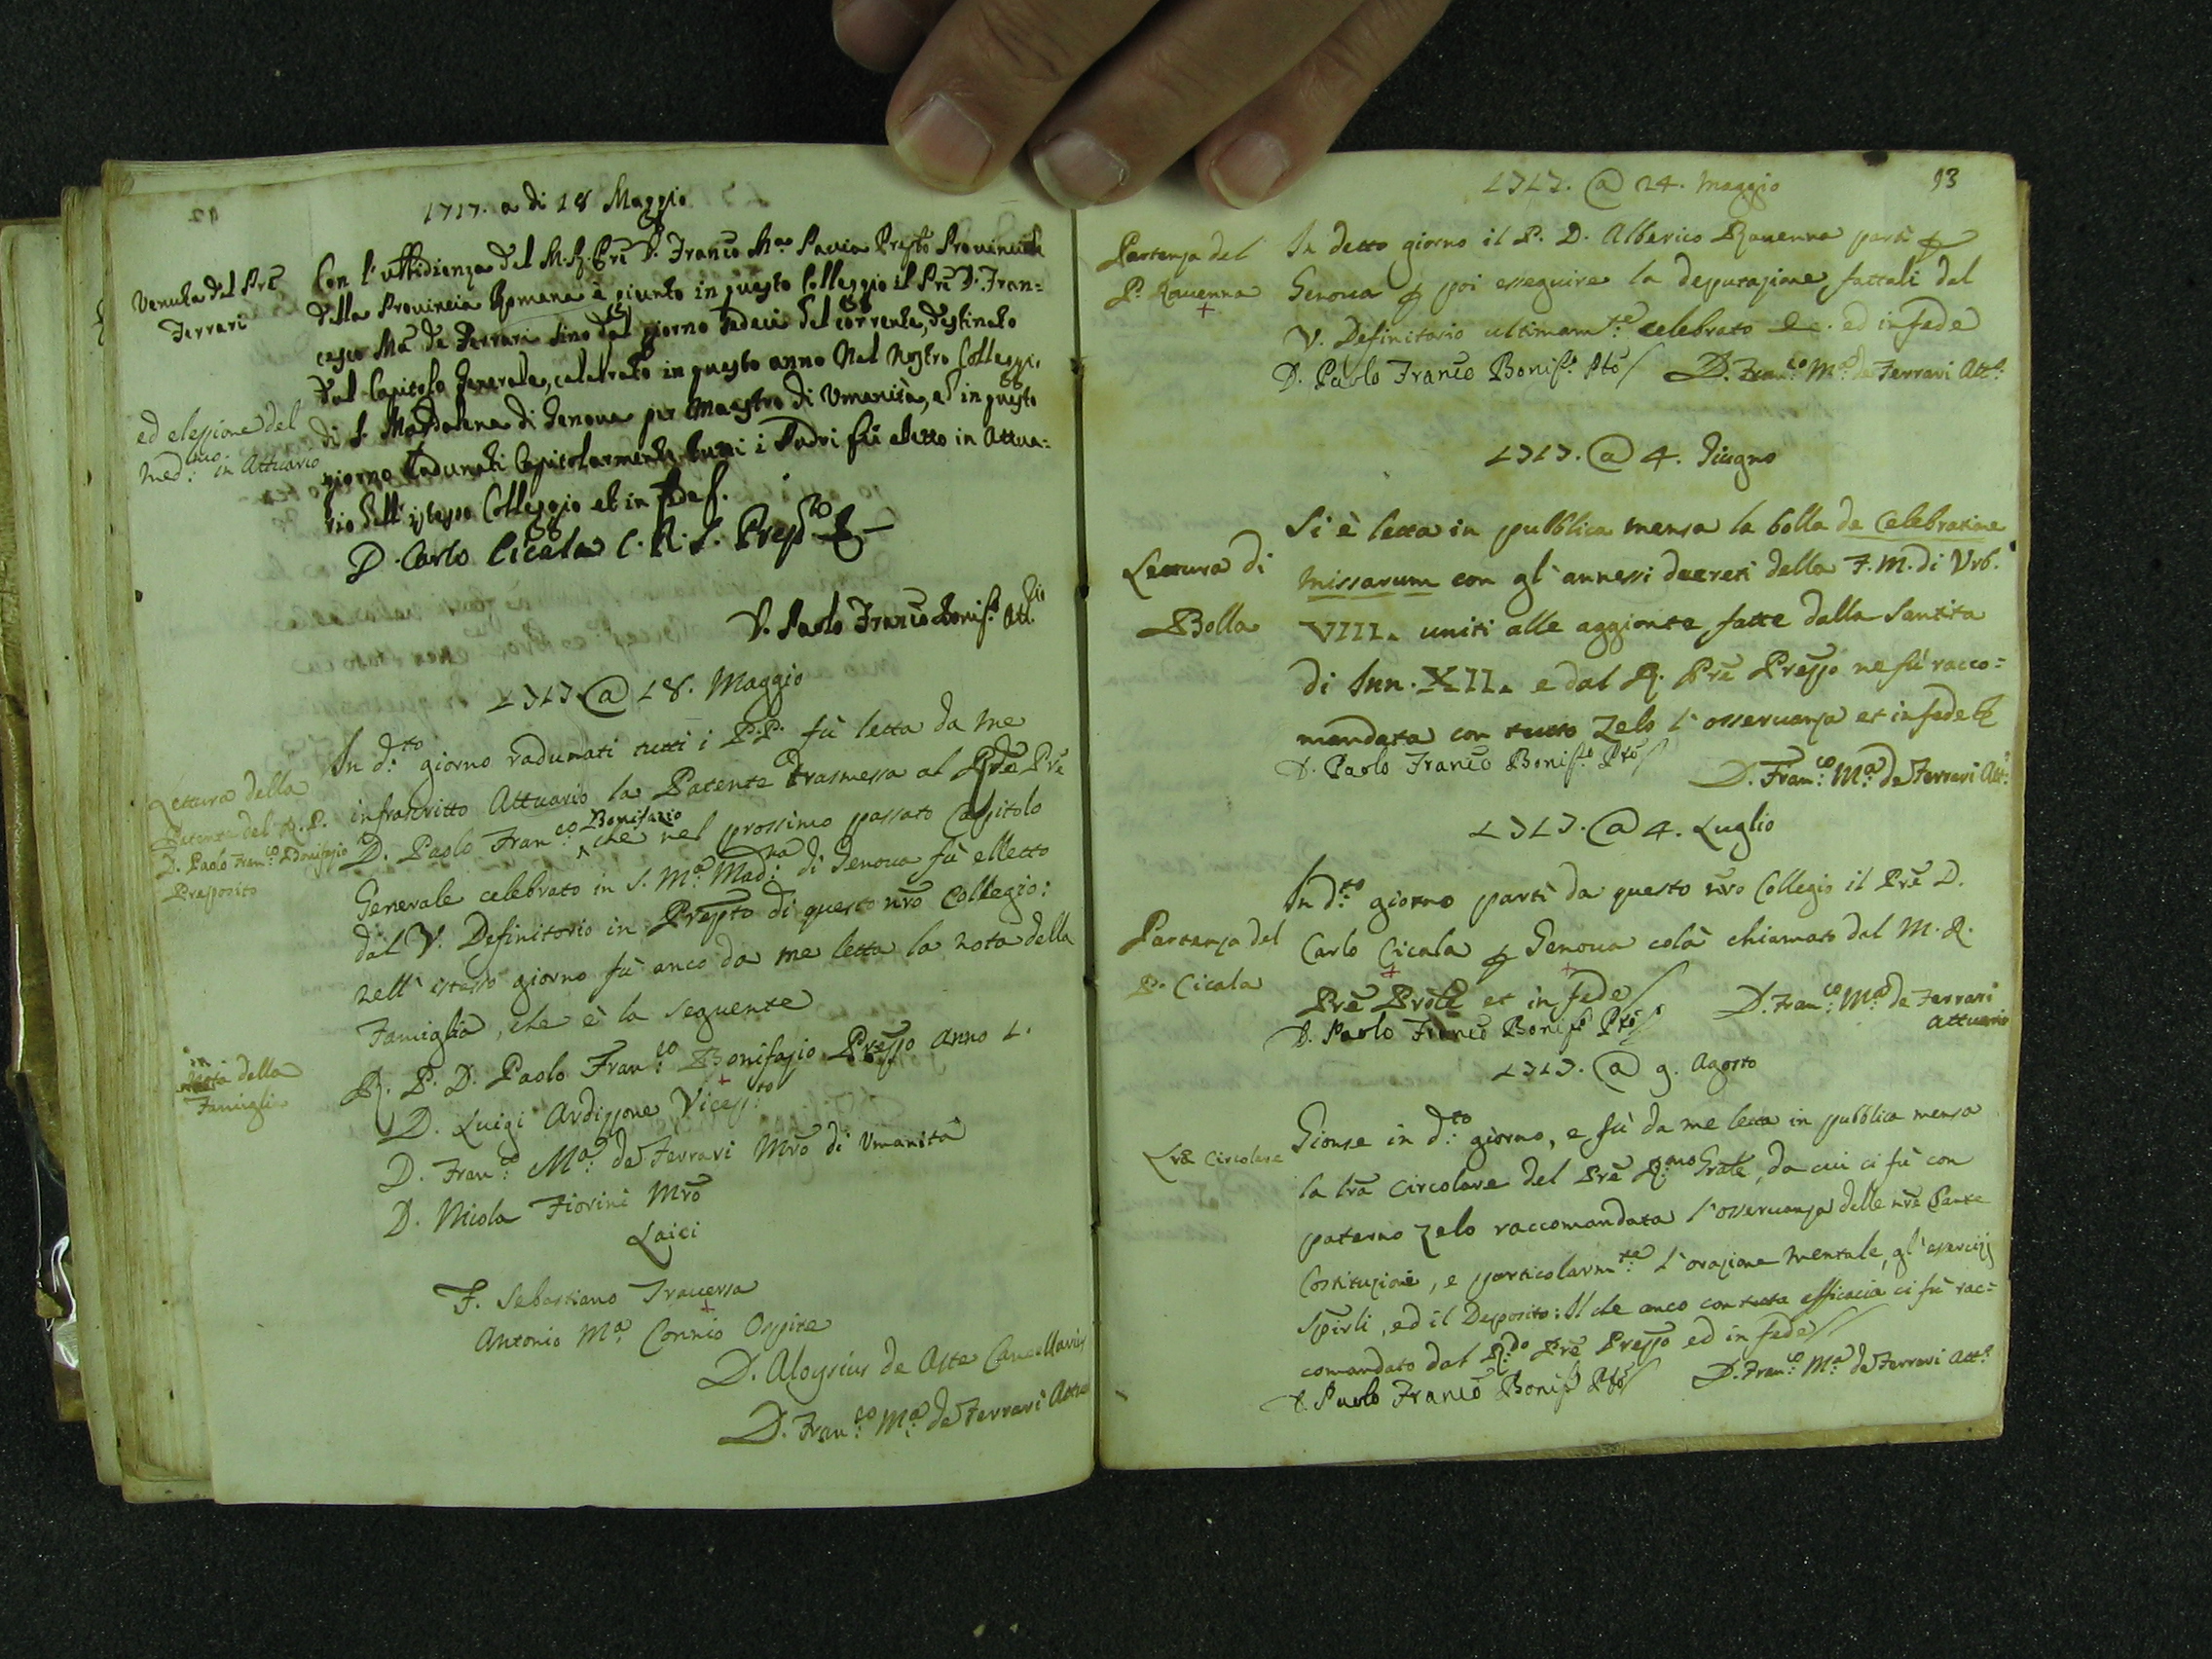 1717. a di 18 Maggio
Venuta del Prē
Ferrari
Con l'ubbidienza del M. R. Prē D. Franco Ma Pavia Prepto Provinciale
della Provincia Romana è giunto in questo Colleggio il Prē D. Fran=
cesco Ma de Ferrari sino dal giorno sedeci del corrente, destinato
dal Capitolo Generale, celebrato in questo anno Nel Nostro Colleggi,
di S. Maddalena di Genova per Maestro di Umanità, ed in questo
ed elezione del
med:mo in Attuario
giorno radunati Capitolarmente tutti i Padri fù eletto in Attua=
rio dell'istesso Colleggio et in fede
D. Carlo Cicala C. R. S. Prepto
D. Paolo Franco Bonifo Attio
1717. @ 18. Maggio
Lettura della
Patente del R. P.
D. Paolo Fran:co Bonifazio
Preposito
In d:to giorno radunati tutti i P.P. fù letta da me
infrascritto Attuario la Patente trasmessa al Prē
D. Paolo Fran:co Bonifazio che nel prossimo passato Capitolo
Generale celebrato in S. Ma: Mad:na di Genova fù elletto
dal V. Definitorio in Prepto di questo nr̄o Collegio:
nell'istesso giorno fù anco da me letta la nota della
Famiglia, che è la seguente
in
nota della
Famigli
R. P. D. Paolo Fran:co Bonifazio Prepo Anno 1.
D. Luigi Ardizzone Vicep:to
D. Fran:co Ma: de Ferrari Mr̄o di Umanità
D. Nicola Fiorini Mr̄o
Laici
F. Sebastiano Traversa
Antonio Ma: Connio Ospite
D. Aloysius de Aste Cancellarius
D. Fran:co Ma: de Ferrari Attuo
93
1717. @ 24. Maggio
Partenza del
P. Ravenna
In detto giorno il P. D. Alberico Ravenna partì p
Genova p poi esseguire la deputazione fattali dal
V. Definitorio ultimam:te celebrato &c. ed in fede
D. Paolo Franco Bonif:o Pto D. Fran:co Ma: de Ferrari Att:o
1717. @ 4. Giugno
Lettura di
Bolla
Si è letta in pubblica mensa la bolla de Celebratione
Missarum con gl'annessi decreti della F. M. di Urb.
VIII. uniti alle aggionte fatte dalla Santità
di Inn. XII. e dal R. Prē Prepo ne fù racco=
mandata con tutto zelo l'osservanza et in fede
D. Paolo Franco Bonif:o Pto
D. Fran:co Ma: de Ferrari Att:o
1717. @ 4. Luglio
Partenza del
P. Cicala
In d:to giorno partì da questo nr̄o Collegio il Prē D.
Carlo Cicala p Genova colà chiamato dal M. R.
Prē Prōle et in fede
D. Paolo Franco Bonifo Pto D. Fran:co Ma: de Ferrari
Attuario
1717. @ 9. Agosto
Lr̄a Circolare
Gionse in d:to giorno, e fù da me letta in pubblica mensa
la lr̄a circolare del Prē R:mo Gnāle, da cui ci fù con
paterno zelo raccomandata l'osservanza delle nr̄e Sante
Costituzioni, e particolarm:te l'orazione mentale, gl'esercizij
Spirli, ed il Deposito: Il che anco con tutta efficacia ci fù rac=
comandato dal R:do Prē Prepo ed in fede
D. Paolo Franco Bonifo Pto D. Fran:co Ma: de Ferrari Att:o